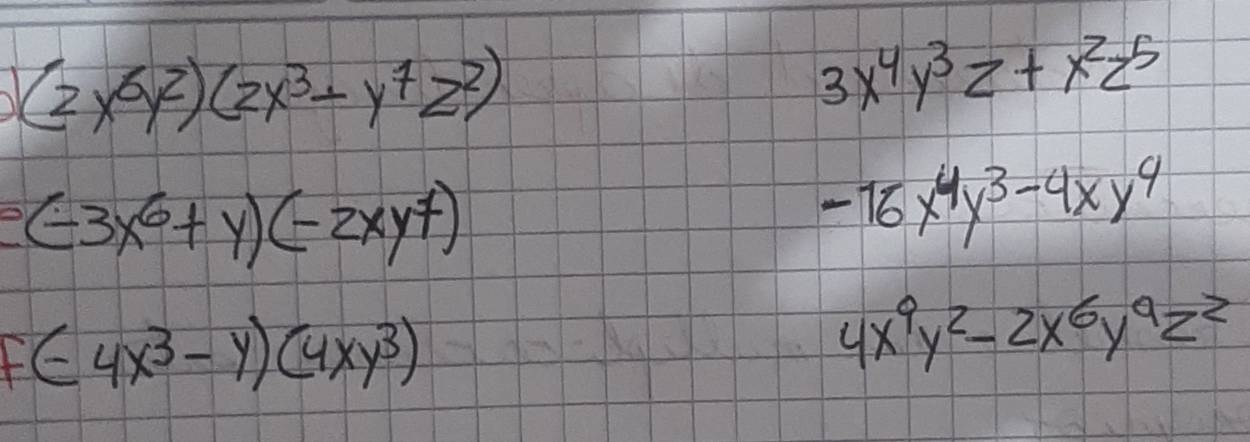 d (2x⁶y²)(2x³ - y⁷z²) 3x⁴y³z + x²z⁵
e (-3x⁶ + y)(-2xy⁷) -16x⁴y³ - 4xy⁴
f (-4x³ - y)(4xy³) 4x⁹y² - 2x⁶y⁹z²